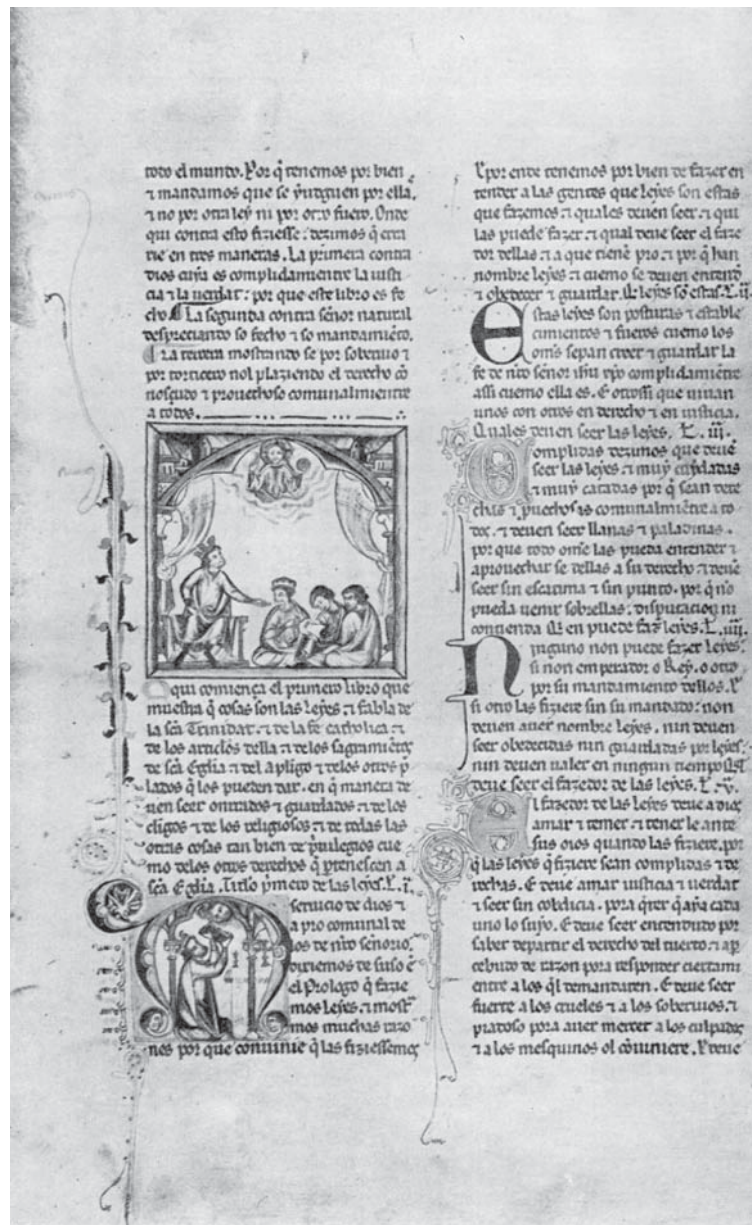 todo el mundo. Por q̄ tenemos por bien
⁊ mandamos que se yudguen por ella,
⁊ no por otra ley ni por otro fuero. Onde
qui contra esto fiziesse: dezimos q̄ erra
rie en tres maneras. La primera contra
dios cuya es complidamientre la iusti
cia ⁊ la uerdat: por que este libro es fe
cho. La segunda contra sennor natural
despreciando so fecho ⁊ so mandamiēto.
La tercera mostrando se por soberuio ⁊
por torticero nol plaziendo el derecho cō
nosçudo ⁊ prouechoso comunalmientre
a todos.
Aqui comiença el primero libro que
muestra q̄ cosas son las leyes ⁊ fabla de
la scā Trinidat. ⁊ de la fe catholica. ⁊
de los articlos della ⁊ delos sagramētos
de scā Eglia ⁊ del apligo ⁊ delos otros p̄
lados q̄ los pueden dar. en q̄ manera de
uen seer onrrados ⁊ guardados ⁊ de los
cligos ⁊ de los religiosos ⁊ de todas las
otras cosas tan bien de p̄uilegios cue
mo delos otros derechos q̄ p̄tenescen a
scā Eglia. Titlo p̄mero de las leyes. L. i.
A seruicio de dios ⁊
a pro comunal de
los de nr̄o sennorio.
dixiemos de suso ē
el Prologo q̄ fazie
mos leyes. ⁊ most
mos muchas razo
nes por que conuinie q̄ las fiziessemos
E por ende tenemos por bien de fazer en
tender a las gentes que leyes son estas
que fazemos. ⁊ quales deuen seer. ⁊ qui
las puede fazer. ⁊ qual deue seer el faze
dor dellas. ⁊ a que tienē pro. ⁊ por q̄ han
nombre leyes. ⁊ cuemo se deuen entend
⁊ obedecer ⁊ guardar. Q̄ leyes sō estas. L. ii.
Estas leyes son posturas ⁊ estable
cimientos ⁊ fueros cuemo los
om̄s sepan creer ⁊ guardar la
fe de nr̄o sennor ihu xpo complidamiētre
assi cuemo ella es. E otrossi que uiuan
unos con otros en derecho ⁊ en iusticia.
Quales deuen seer las leyes. L. iii.
Complidas dezimos que deuē
seer las leyes. ⁊ muy cuydadas
⁊ muy catadas por q̄ sean dere
chas ⁊ p̄uechosas comunalmiētre a to
dos. ⁊ deuen seer llanas ⁊ paladinas.
por que todo om̄e las pueda entender ⁊
aprouechar se dellas a su derecho. ⁊ deuē
seer sin escatima ⁊ sin punto. por q̄ no
pueda uenir sobrellas: disputacion ni
contienda. Q̄en puede faz̄ leyes. L. iiii.
Ninguno non puede fazer leyes:
si non emperador o Rey. o otro
por su mandamiento dellos. E
si otro las fiziere sin su mandado: non
deuen auer nombre leyes. nin deuen
seer obedecidas nin guardadas por leyes:
nin deuen ualer en ningun tiempo. Q̄l
deue seer el fazedor de las leyes. L. v.
El fazedor de las leyes deue a dios
amar ⁊ temer. ⁊ tener le ante
sus oios quando las fiziere. por
q̄ las leyes q̄ fiziere sean complidas ⁊ de
rechas. E deue amar iusticia ⁊ uerdat
⁊ seer sin cobdicia. pora q̄rer q̄ aya cada
uno lo suyo. E deue seer entendudo por
saber departir el derecho del tuerto. ⁊ ap
cebudo de razon pora responder ciertami
entre a los q̄l demandaren. E deue seer
fuerte a los crueles ⁊ a los soberuios. ⁊
piadoso pora auer mercet a los culpados
⁊ a los mesquinos ol cōuiniere. E deue